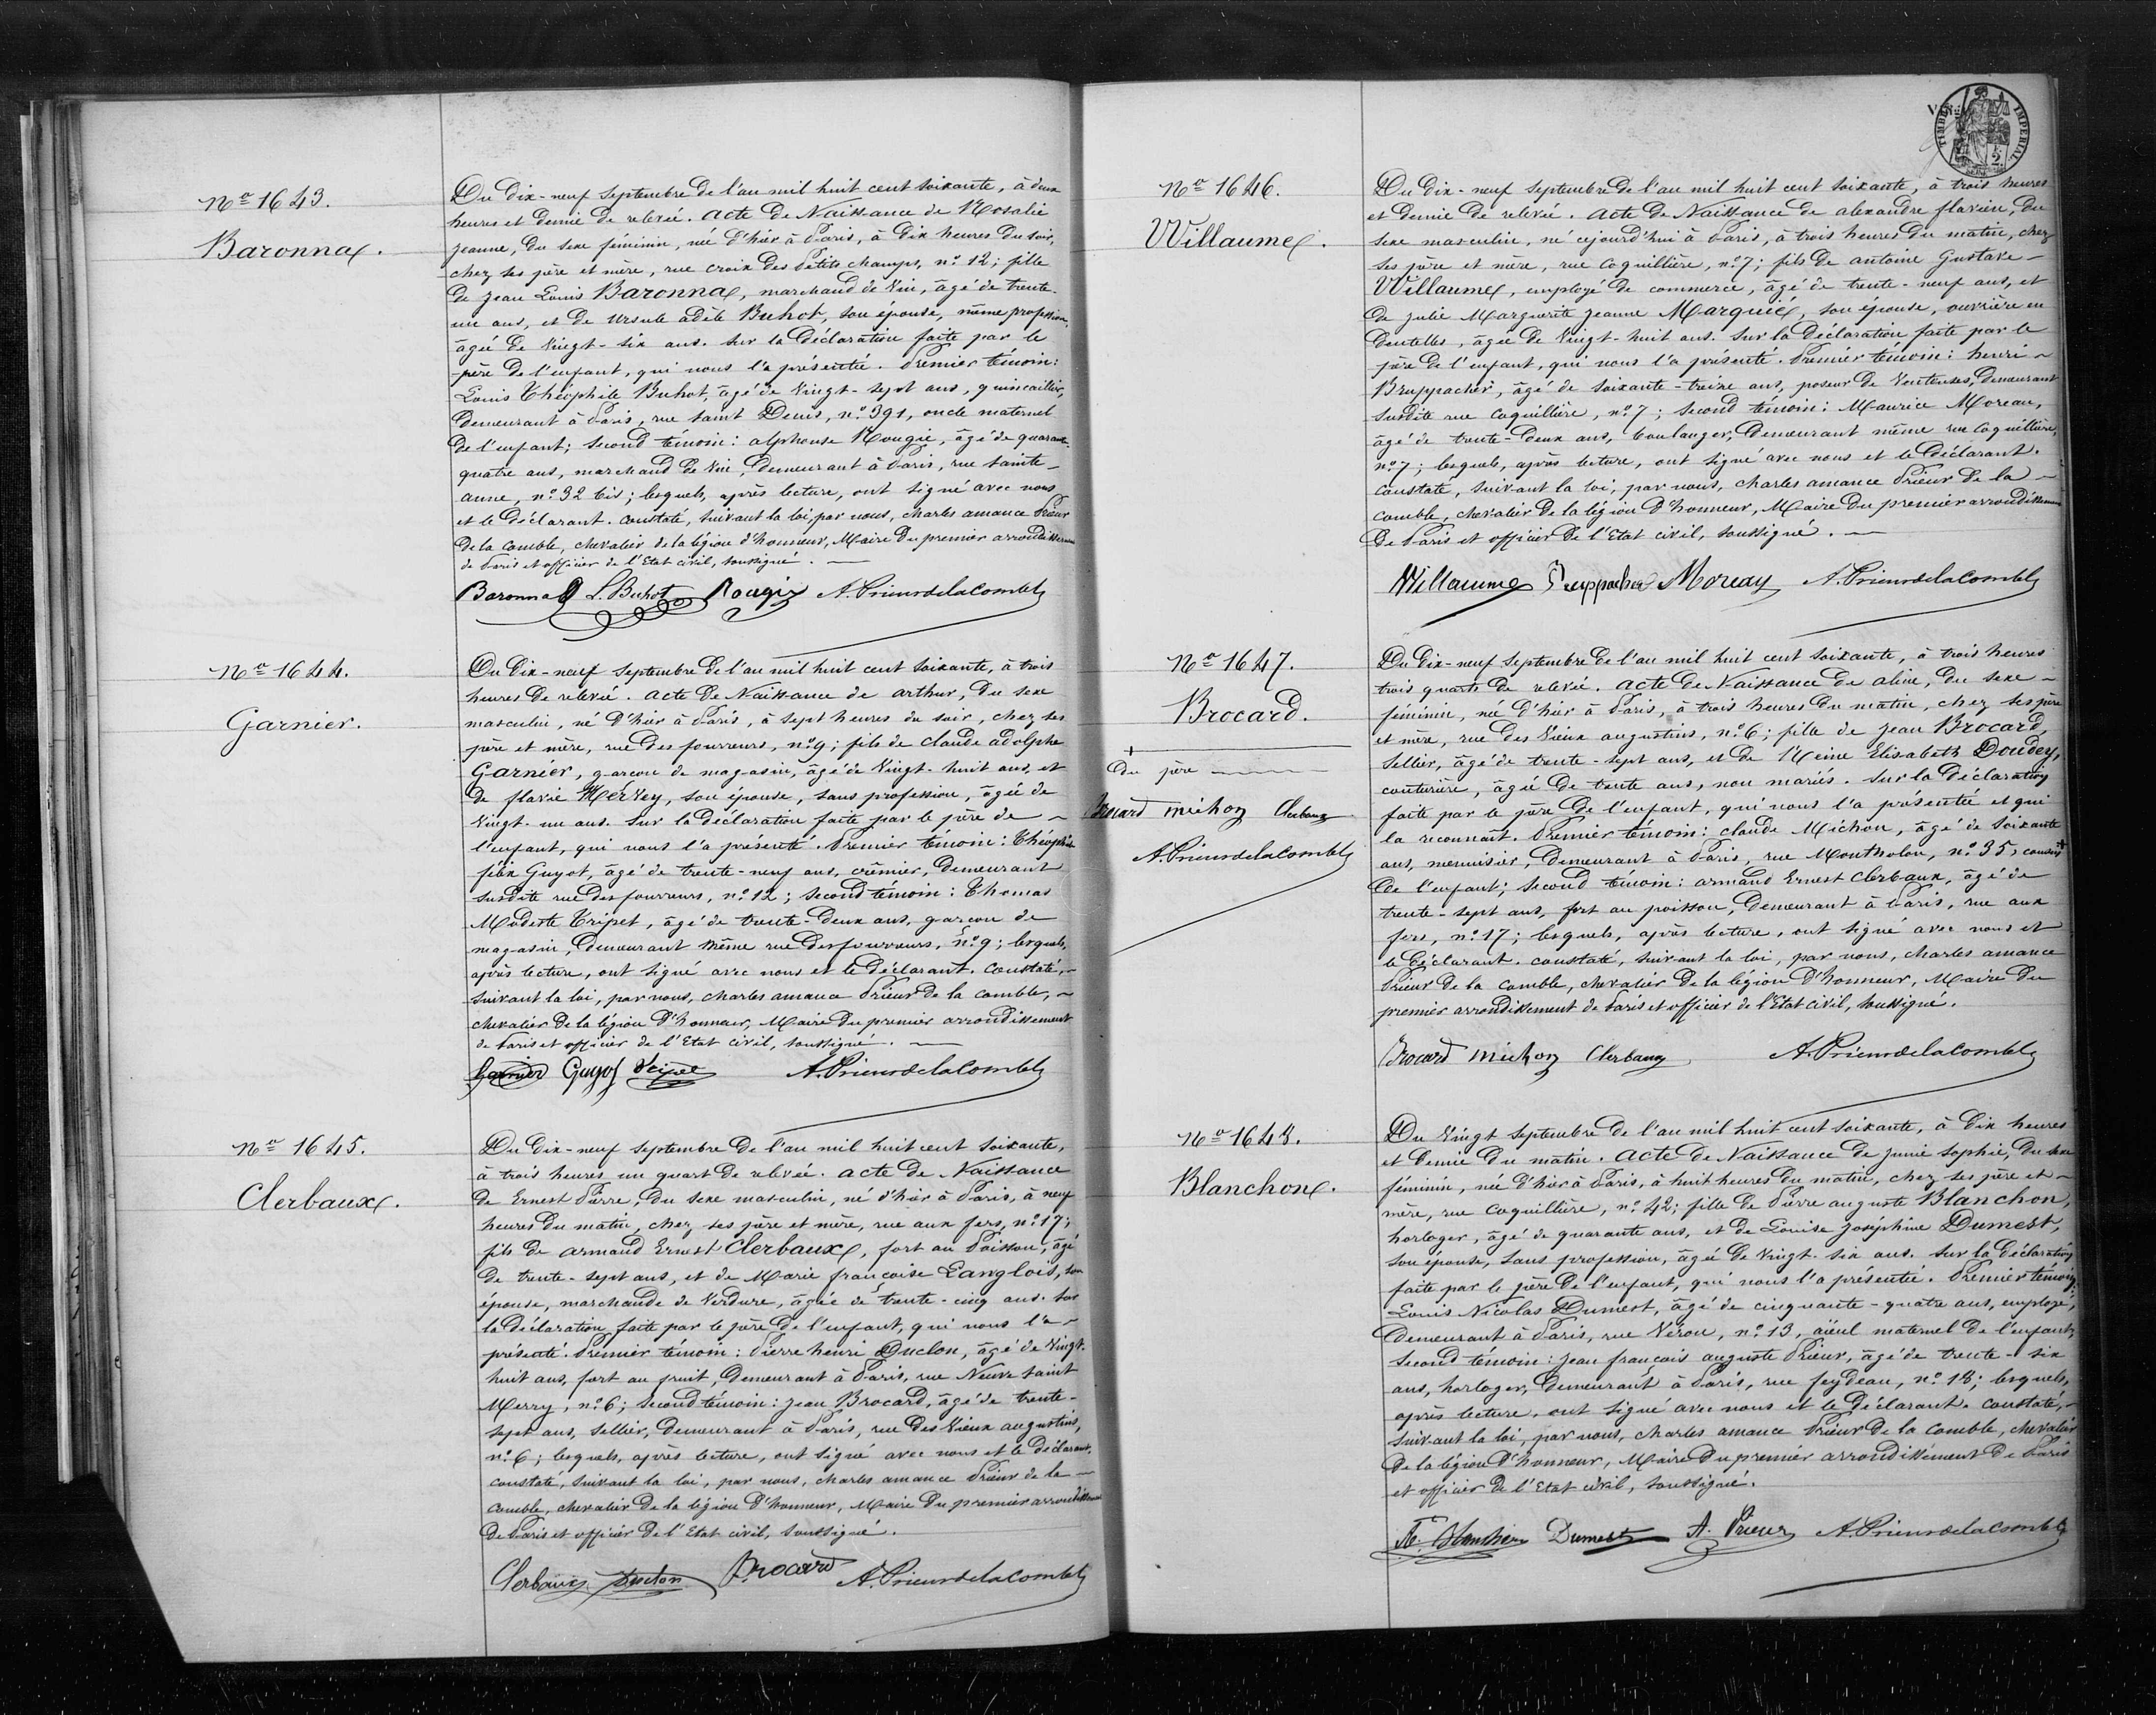 No 1643.
Baronna.
Du dix-neuf Septembre de l'an mil huit cent soixante, à deux
heures et demie de relevée. acte de Naissance de Rosalie
jeanne, du sexe féminin, née d'hier à Paris, à dix heures du soir,
chez ses père et mère, rue croix des Petits champs, no. 12; fille
de jean Louis Baronna, marchand de vin, âgé de trente-
un ans, et de Ursule adèle Buhot, son épouse, même profession,
âgée de vingt-six ans. Sur la déclaration faite par le
père de l'enfant, qui nous l'a présentée. Premier témoin:
Louis Théophile Buhot, âgé de vingt-sept ans, quincaillier,
demeurant à Paris, rue saint Denis, no. 391, oncle maternel
de l'enfant; second témoin: alphonse Rougié, âgé de quarante-
quatre ans, marchand de vin, demeurant à Paris, rue sainte-
anne, no. 32 bis; lesquels, après lecture, ont signé avec nous
et le déclarant. constaté, suivant la loi, par nous, charles amance Prieur
de la comble, chevalier de la légion d'honneur, Maire du premier arrondissement
de Paris et officier de l'Etat civil, soussigné.
Baronna L. Buhot Rougié A. Prieur de la Comble
No 1644.
Garnier.
Du dix-neuf Septembre de l'an mil huit cent soixante, à trois
heures de relevée. acte de Naissance de arthur, du sexe
masculin, né d'hier à Paris, à sept heures du soir, chez ses
père et mère, rue des fourreurs, no. 9; fils de claude adolphe
Garnier, garçon de magasin, âgé de vingt-huit ans, et
de flavie Hervey, son épouse, sans profession, âgée de
vingt-un ans. Sur la déclaration faite par le père de
l'enfant, qui nous l'a présenté. Premier témoin: Théophile
félix Guyot, âgé de trente-neuf ans, crêmier, demeurant
susdite rue des fourreurs, no. 12; second témoin: Thomas
Modeste Tripet, âgé de trente-deux ans, garçon de
magasin, demeurant même rue des fourreurs, no. 9; lesquels,
après lecture, ont signé avec nous et le déclarant. constaté,
suivant la loi, par nous, charles amance Prieur de la comble,
chevalier de la légion d'honneur, Maire du premier arrondissement
de Paris et officier de l'Etat civil, soussigné.
Garnier Guyot Tripet A. Prieur de la Comble
No 1645.
Clerbaux.
Du dix-neuf Septembre de l'an mil huit cent soixante,
à trois heures un quart de relevée. acte de Naissance
de Ernest Pierre, du sexe masculin, né d'hier à Paris, à neuf
heures du matin, chez ses père et mère, rue aux fers, no. 17;
fils de armand Ernest Clerbaux, fort au Poisson, âgé
de trente-sept ans, et de Marie françoise Langlois, son
épouse, marchande de verdure, âgée de trente-cinq ans. Sur
la déclaration faite par le père de l'enfant, qui nous l'a
présenté. Premier témoin: Pierre henri Duclon, âgé de vingt-
huit ans, fort au fruit, demeurant à Paris, rue Neuve saint
Merry, no. 6; second témoin: jean Brocard, âgé de trente-
sept ans, sellier, demeurant à Paris, rue des vieux augustins,
no. 6; lesquels, après lecture, ont signé avec nous et le déclarant.
constaté, suivant la loi, par nous, charles amance Prieur de la
comble, chevalier de la légion d'honneur, Maire du premier arrondissement
de Paris et officier de l'Etat civil, soussigné.
Clerbaux Duclon Brocard A. Prieur de la Comble
TIMBRE IMPERIAL
2
No 1646.
Willaume.
Du dix-neuf Septembre de l'an mil huit cent soixante, à trois heures
et demie de relevée. acte de Naissance de alexandre flavien, du
sexe masculin, né cejourd'hui à Paris, à trois heures du matin, chez
ses père et mère, rue coquillière, no. 7; fils de antoine Gustave
Willaume, employé de commerce, âgé de trente-neuf ans, et
de julie Marguerite jeanne Marquié, son épouse, ouvrière en
dentelles, âgée de vingt-huit ans. Sur la déclaration faite par le
père de l'enfant, qui nous l'a présenté. Premier témoin: henri
Bruppacher, âgé de soixante-treize ans, poseur de ventouses, demeurant
susdite rue coquillière, no. 7; second témoin: Maurice Moreau,
âgé de trente-deux ans, boulanger, demeurant même rue coquillière,
no. 7; lesquels, après lecture, ont signé avec nous et le déclarant.
constaté, suivant la loi, par nous, charles amance Prieur de la
comble, chevalier de la légion d'honneur, Maire du premier arrondissement
de Paris et officier de l'Etat civil, soussigné.
Willaume Bruppacher Moreau A. Prieur de la Comble
No 1647.
Brocard.
+
du père
Brocard michon Clerbaux
A. Prieur de la Comble
Du dix-neuf Septembre de l'an mil huit cent soixante, à trois heures
trois quarts de relevée. acte de Naissance de aline, du sexe
féminin, née d'hier à Paris, à trois heures du matin, chez ses père
et mère, rue des vieux augustins, no. 6; fille de jean Brocard,
sellier, âgé de trente-sept ans, et de Reine Elisabeth Doudey,
couturière, âgée de trente ans, non mariés. Sur la déclaration
faite par le père de l'enfant, qui nous l'a présentée et qui
la reconnaît. Premier témoin: claude Michon, âgé de soixante
ans, menuisier, demeurant à Paris, rue Montholon, no. 35, cousin +
de l'enfant; second témoin: armand Ernest Clerbaux, âgé de
trente-sept ans, fort au poisson, demeurant à Paris, rue aux
fers, no. 17; lesquels, après lecture, ont signé avec nous et
le déclarant. constaté, suivant la loi, par nous, charles amance
Prieur de la comble, chevalier de la légion d'honneur, Maire du
premier arrondissement de Paris et officier de l'Etat civil, soussigné.
Brocard michon Clerbaux A. Prieur de la Comble
No 1648.
Blanchon.
Du vingt Septembre de l'an mil huit cent soixante, à dix heures
et demie du matin. acte de Naissance de junie sophie, du sexe
féminin, née d'hier à Paris, à huit heures du matin, chez ses père et
mère, rue coquillière, no. 42; fille de Pierre auguste Blanchon,
horloger, âgé de quarante ans, et de Louise joséphine Dumest,
son épouse, sans profession, âgée de vingt-six ans. Sur la déclaration
faite par le père de l'enfant, qui nous l'a présentée. Premier témoin:
Louis Nicolas Dumest, âgé de cinquante-quatre ans, employé,
demeurant à Paris, rue Véron, no. 13, aïeul maternel de l'enfant;
second témoin: jean françois auguste Prieur, âgé de trente-six
ans, horloger, demeurant à Paris, rue feydeau, no. 18; lesquels,
après lecture, ont signé avec nous et le déclarant. constaté,
suivant la loi, par nous, charles amance Prieur de la comble, chevalier
de la légion d'honneur, Maire du premier arrondissement de Paris
et officier de l'Etat civil, soussigné.
Blanchon Dumest A. Prieur A. Prieur de la Comble